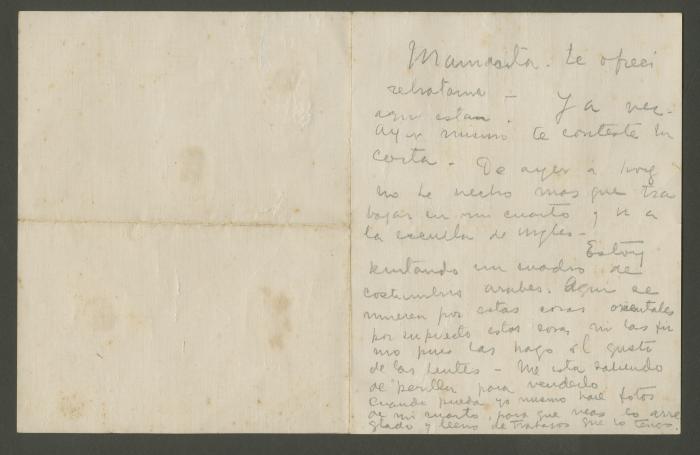 Mamasita. te ofreci
retratarme — Ya ves-
aqui estan.
Ayer mismo te conteste tu
carta. De ayer a hoy
no he hecho mas que tra
bajar en mi cuarto y ir a
la escuela de ingles —
Estoy
pintando un cuadro de
costumbres arabes. Aqui se
mueren por estas cosas orientales
por supuesto estas cosas ni las fir
mo pues las hago al gusto
de las gentes — Me esta saliendo
de perilla para venderlo
Cuando pueda yo mismo haré fotos
de mi cuarto. para que veas lo arre
glado y lleno de trabajos que lo tengo.